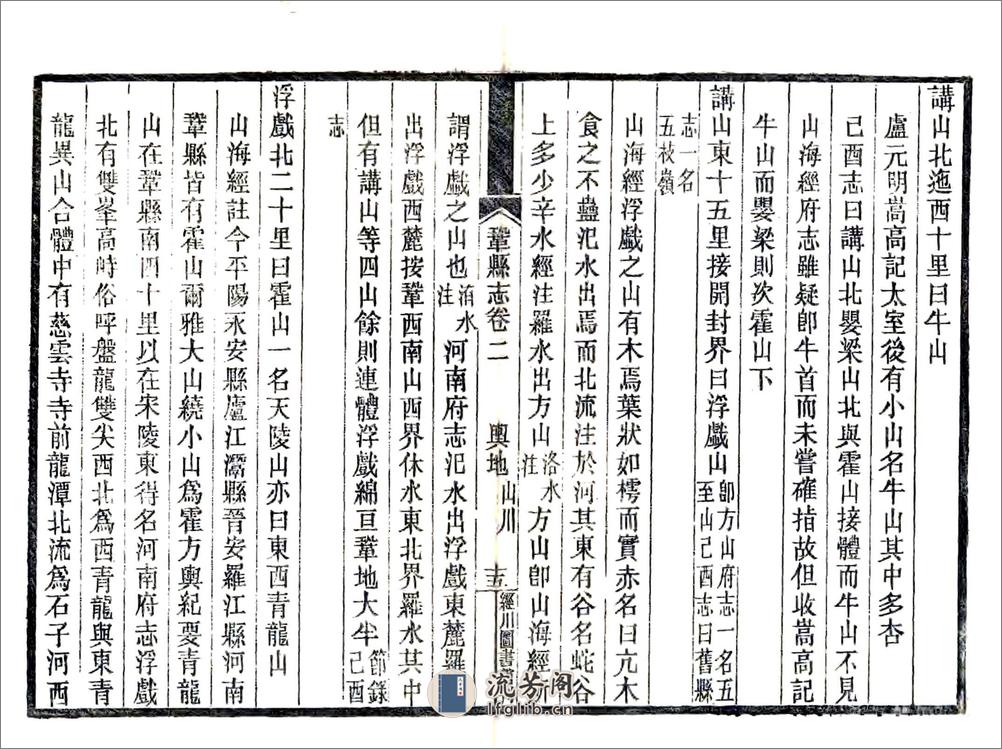 講山北迤西十里曰牛山
盧元明嵩高記太室後有小山名牛山其中多杏
己酉志曰講山北嬰梁山北與霍山接體而牛山不見
山海經府志雖疑卽牛首而未嘗確指故但收嵩高記
牛山而嬰梁則次霍山下
講山東十五里接開封界曰浮戲山卽方山府志一名五
至山己酉志曰舊縣
志一名
五枝嶺
山海經浮戲之山有木焉葉狀如樗而實赤名曰亢木
食之不蠱汜水出焉而北流注於河其東有谷名蛇谷
上多少辛水經注羅水出方山洛水
注方山卽山海經
鞏縣志卷二
輿地
山川
經川圖書
謂浮戲之山也洧水
注河南府志汜水出浮戲東麓羅
出浮戲西麓按鞏西南山西界休水東北界羅水其中
但有講山等四山餘則連體浮戲綿亘鞏地大半節錄
己酉
志
浮戲北二十里曰霍山一名天陵山亦曰東西青龍山
山海經註今平陽永安縣廬江灊縣晉安羅江縣河南
鞏縣皆有霍山爾雅大山繞小山爲霍方輿紀要青龍
山在鞏縣南四十里以在宋陵東得名河南府志浮戲
北有雙峯高峙俗呼盤龍雙尖西北爲西青龍與東青
龍異山合體中有慈雲寺寺前龍潭北流爲石子河西
流芳阁
lfglib.cn